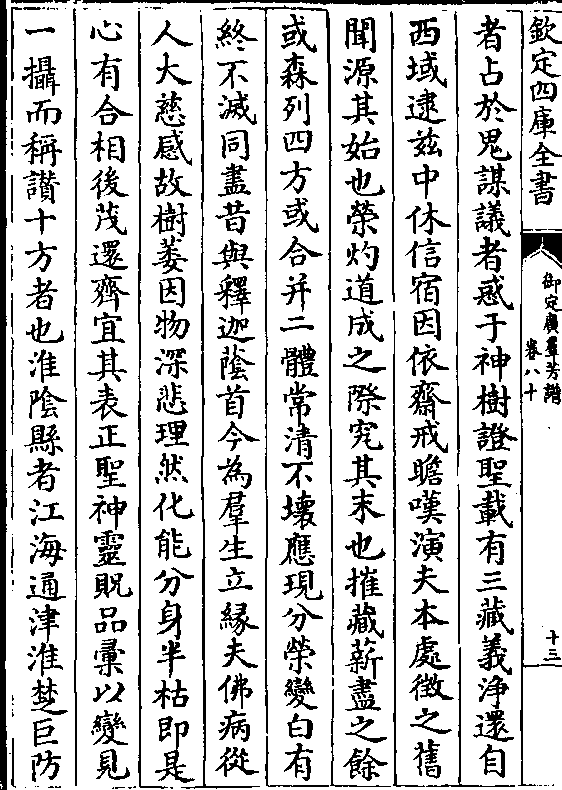 欽定四庫全書
御定廣羣芳譜
卷八十
十三
者占於鬼謀議者惑于神樹證聖載有三藏義浄還自
西域逮兹中休信宿因依齋戒瞻嘆演夫本處徴之舊
聞源其始也榮灼道成之際究其末也摧藏薪盡之餘
或森列四方或合并二體常清不壊應現分榮變白有
終不滅同盡昔與釋迦蔭首今為羣生立縁夫佛病從
人大慈感故樹萎因物深悲理然化能分身半枯即是
心有合相後茂還齊宜其表正聖神靈貺品彚以變見
一攝而稱讃十方者也淮陰縣者江海通津淮楚巨防